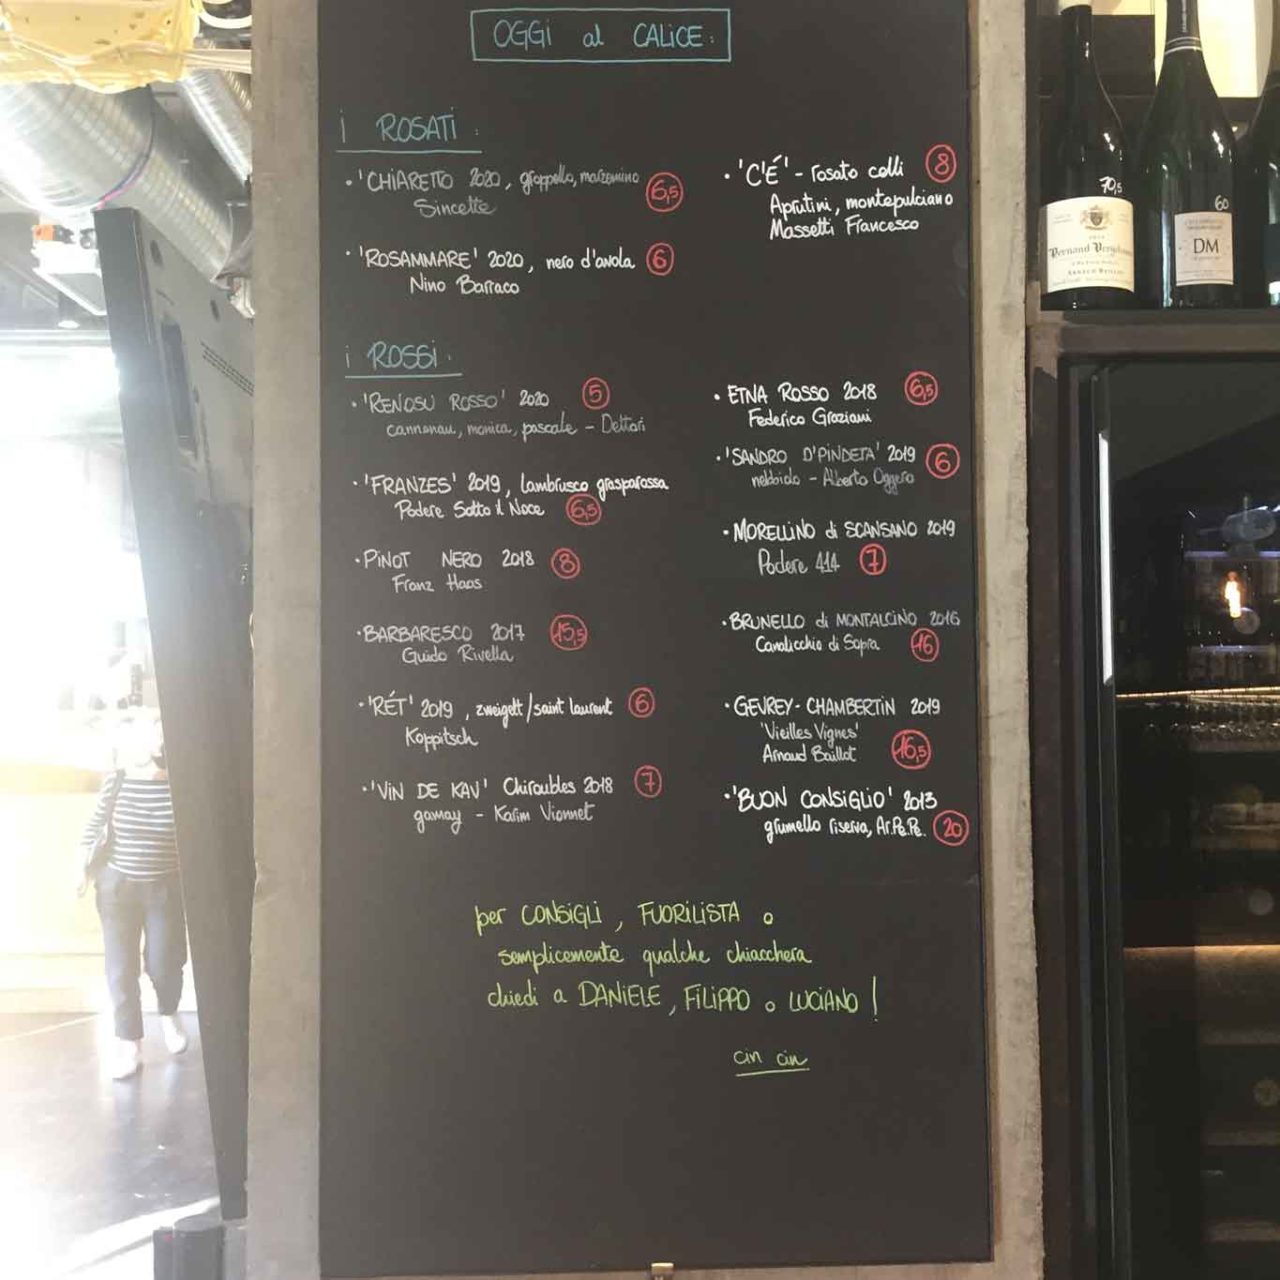 OGGI al CALICE:
i ROSATI:
• 'CHIARETTO 2020, groppello, marzemino 6,5
Sincette
• 'ROSAMMARE' 2020, nero d'avola 6
Nino Barraco
• 'C'É' - rosato colli 8
Aprutini, montepulciano
Massetti Francesco
i ROSSI:
• 'RENOSU ROSSO' 2020 5
cannonau, monica, pascale - Dettori
• 'FRANZES' 2019, lambrusco grasparossa
Podere Sotto il Noce 6,5
• PINOT NERO 2018 8
Franz Haas
• BARBARESCO 2017 15,5
Guido Rivella
• 'RÉT' 2019, zweigelt/saint laurent 6
Koppitsch
• 'VIN DE KAV' Chiroubles 2018 7
gamay - Karim Vionnet
• ETNA ROSSO 2018 6,5
Federico Graziani
• 'SANDRO D'PINDETA' 2019 6
nebbiolo - Alberto Oggero
• MORELLINO di SCANSANO 2019
Podere 414 7
• BRUNELLO di MONTALCINO 2016
Canalicchio di Sopra 16
• GEVREY-CHAMBERTIN 2019
'Vieilles Vignes'
Arnaud Baillot 16,5
• 'BUON CONSIGLIO' 2013
grumello riserva, Ar.Pe.Pe. 20
per CONSIGLI, FUORILISTA o
semplicemente qualche chiacchera
chiedi a DANIELE, FILIPPO o LUCIANO!
cin cin
70,5
60
DM